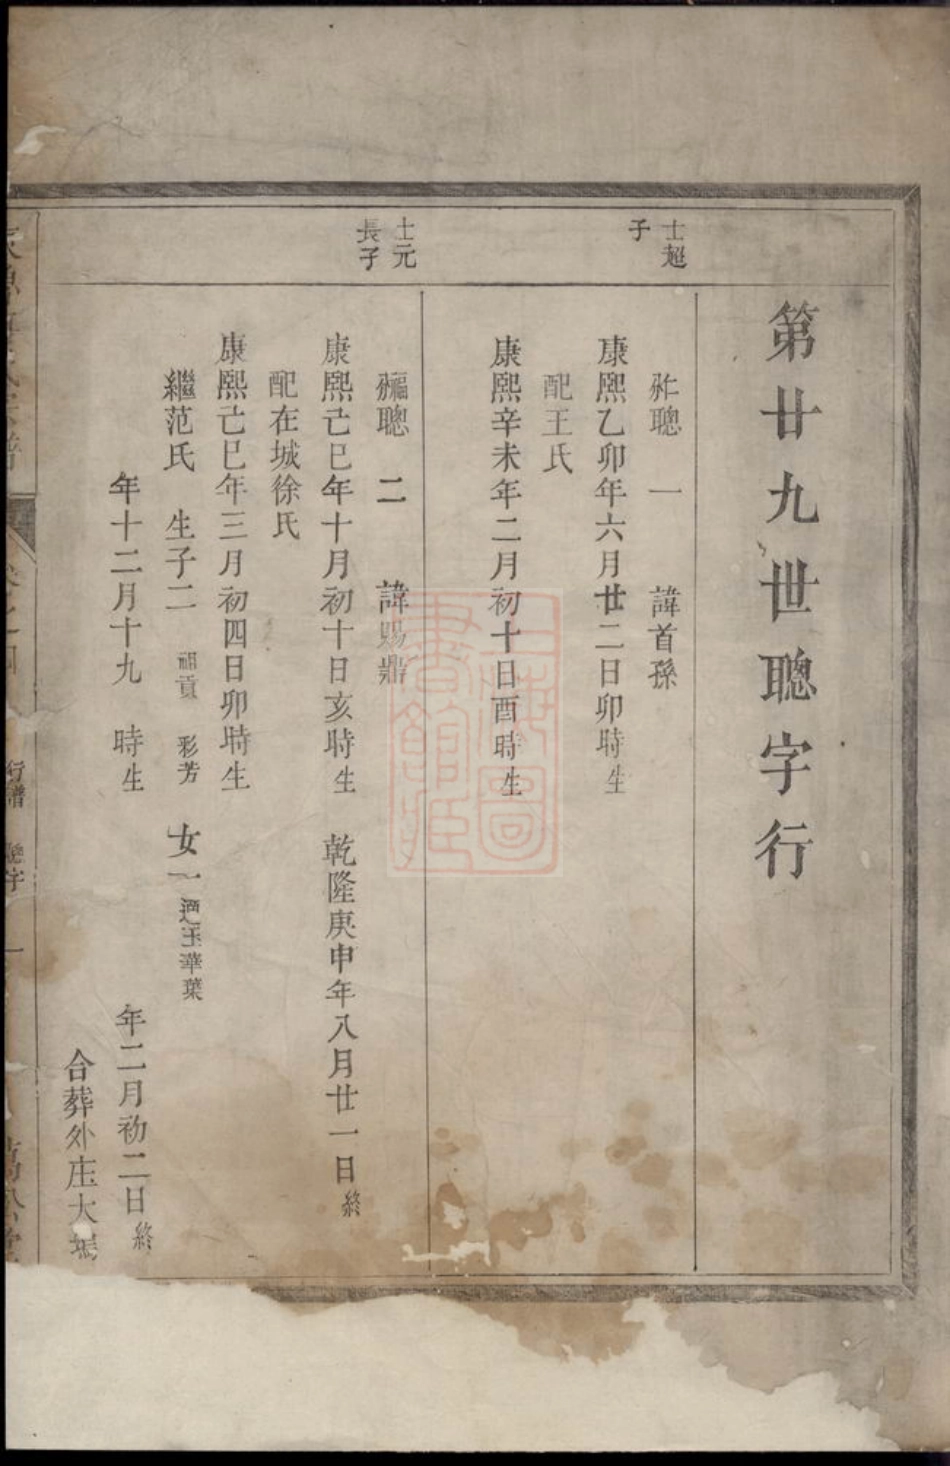 第廿九世聰字行
士超
子
聰一 諱首孫
康熙乙卯年六月廿二日卯時生
配王氏
康熙辛未年二月初十日酉時生
士元
長子
聰二 諱賜鼎
康熙己巳年十月初十日亥時生 乾隆庚申年八月廿一日終
配在城徐氏
康熙己巳年三月初四日卯時生
繼范氏 生子二 祖貢 彩芳 女一 適玉華葉
年十二月十九 時生 年二月初二日終
合葬外庄大塢
行譜 聰字 一